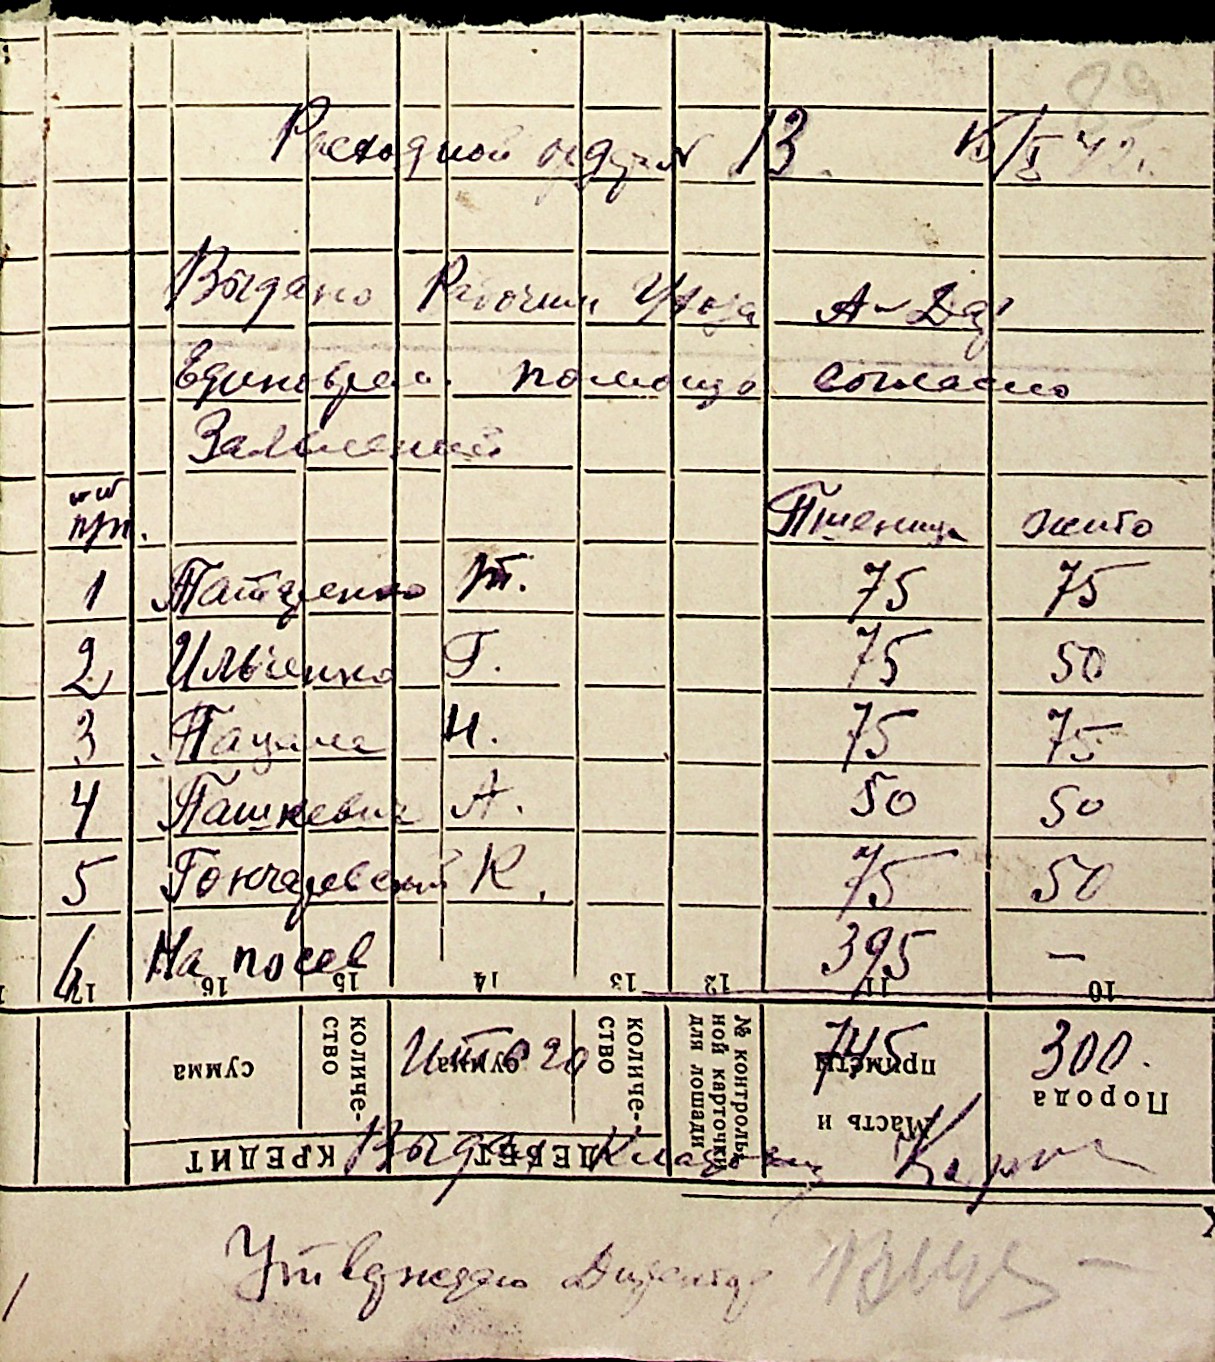 89
Расходной ордер № 13. 15/X 42г.
Выдано Рабочим Ухоза А-Дар
Единоврем. помощь согласно
Заявлений
№№ п/п. Пшеница жито
1 Татаренко Т. 75 75
2 Ильченко Г. 75 50
3 Пацала Н. 75 75
4 Пашкевич А. 50 50
5 Гончаревский К. 75 50
6 На посев 395 —
17 16 15 14 13 12 11 10
Итого 745 300.
сумма
количе-
ство
сумма
количе-
ство
№ контроль-
ной карточки
для лошади
Масть и
приметы
Порода
КРЕДИТ
ДЕБЕТ
Выдал Кладовщ
Утверждаю Директор